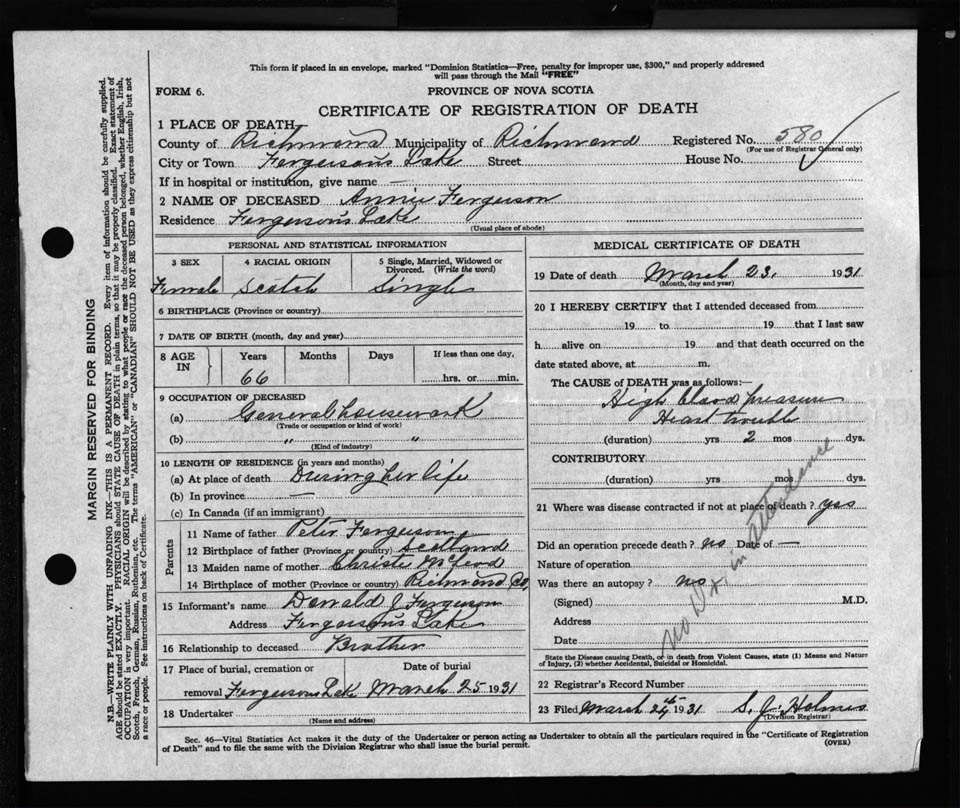 This form if placed in an envelope, marked "Dominion Statistics—Free, penalty for improper use, $300," and properly addressed
will pass through the Mail "FREE"
FORM 6. PROVINCE OF NOVA SCOTIA
CERTIFICATE OF REGISTRATION OF DEATH
1 PLACE OF DEATH—
County of Richmond Municipality of Richmond Registered No. 580
(For use of Registrar General only)
City or Town Ferguson's Lake Street House No.
If in hospital or institution, give name —
2 NAME OF DECEASED Annie Ferguson
Residence Ferguson's Lake
(Usual place of abode)
PERSONAL AND STATISTICAL INFORMATION
3 SEX 4 RACIAL ORIGIN 5 Single, Married, Widowed or
Divorced. (Write the word)
Female Scotch Single
6 BIRTHPLACE (Province or country)
7 DATE OF BIRTH (month, day and year)
8 AGE IN Years Months Days If less than one day,
66 hrs. or min.
9 OCCUPATION OF DECEASED
(a) General housework
(Trade or occupation or kind of work)
(b) " "
(Kind of industry)
10 LENGTH OF RESIDENCE (in years and months)
(a) At place of death During her life
(b) In province —
(c) In Canada (if an immigrant)
Parents
11 Name of father Peter Ferguson
12 Birthplace of father (Province or country) Scotland
13 Maiden name of mother Christie McLeod
14 Birthplace of mother (Province or country) Richmond Co,
15 Informant's name Donald J Ferguson
Address Ferguson's Lake
16 Relationship to deceased Brother
17 Place of burial, cremation or Date of burial
removal Fergusons Lake March 25 1931
18 Undertaker
(Name and address)
MEDICAL CERTIFICATE OF DEATH
19 Date of death March 23, 1931
(Month, day and year)
20 I HEREBY CERTIFY that I attended deceased from
19 to 19 that I last saw
h alive on 19 and that death occurred on the
date stated above, at m.
The CAUSE of DEATH was as follows:—
High blood pressure
Heart trouble
(duration) yrs 2 mos dys.
CONTRIBUTORY
(duration) yrs mos dys.
21 Where was disease contracted if not at place of death? yes
Did an operation precede death? no Date of —
Nature of operation
Was there an autopsy? no
(Signed) M.D.
Address
Date
No Dr. in attendance
State the Disease causing Death, or in death from Violent Causes, state (1) Means and Nature
of Injury, (2) whether Accidental, Suicidal or Homicidal.
22 Registrar's Record Number
23 Filed March 24th 1931 S. J. Holmes
(Division Registrar)
Sec. 46—Vital Statistics Act makes it the duty of the Undertaker or person acting as Undertaker to obtain all the particulars required in the "Certificate of Registration
of Death" and to file the same with the Division Registrar who shall issue the burial permit. (OVER)
MARGIN RESERVED FOR BINDING
N.B.—WRITE PLAINLY WITH UNFADING INK—THIS IS A PERMANENT RECORD. Every item of information should be carefully supplied.
AGE should be stated EXACTLY. PHYSICIANS should STATE CAUSE OF DEATH in plain terms, so that it may be properly classified. Exact statement of
OCCUPATION is very important. RACIAL ORIGIN will be described by stating to what people or race the deceased person belonged, whether English, Irish,
Scotch, French, German, Russian, Ruthenian, etc. The terms "AMERICAN" or "CANADIAN" SHOULD NOT BE USED as they express citizenship but not
a race or people. See instructions on back of Certificate.